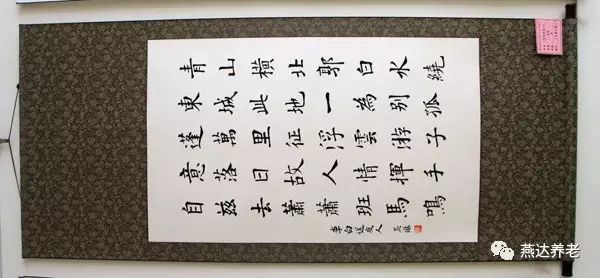 青山橫北郭白水繞
東城此地一為别孤
蓬萬里征浮雲游子
意落日故人情揮手
自兹去蕭蕭班馬鳴
李白送友人
燕达养老